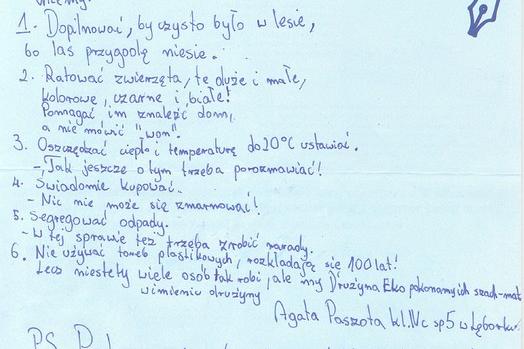 1. Dopilnować, by czysto było w lesie,
bo las przygodę niesie.
2. Ratować zwierzęta, te duże i małe,
kolorowe, czarne i białe!
Pomagać im znaleźć dom,
a nie mówić "won".
3. Oszczędzać ciepło i temperaturę do 20°C ustawiać.
- Tak jeszcze o tym trzeba porozmawiać!
4. Świadomie kupować.
- Nic nie może się zmarnować!
5. Segregować odpady.
- W tej sprawie też trzeba zrobić narady.
6. Nie używać toreb plastikowych, rozkładają się 100 lat!
Lecz niestety wiele osób tak robi, ale my Drużyna Eko pokonamy ich szach-mat
w imieniu drużyny
Agata Paszota kl. IVc sp5 w Lęborku
PS.